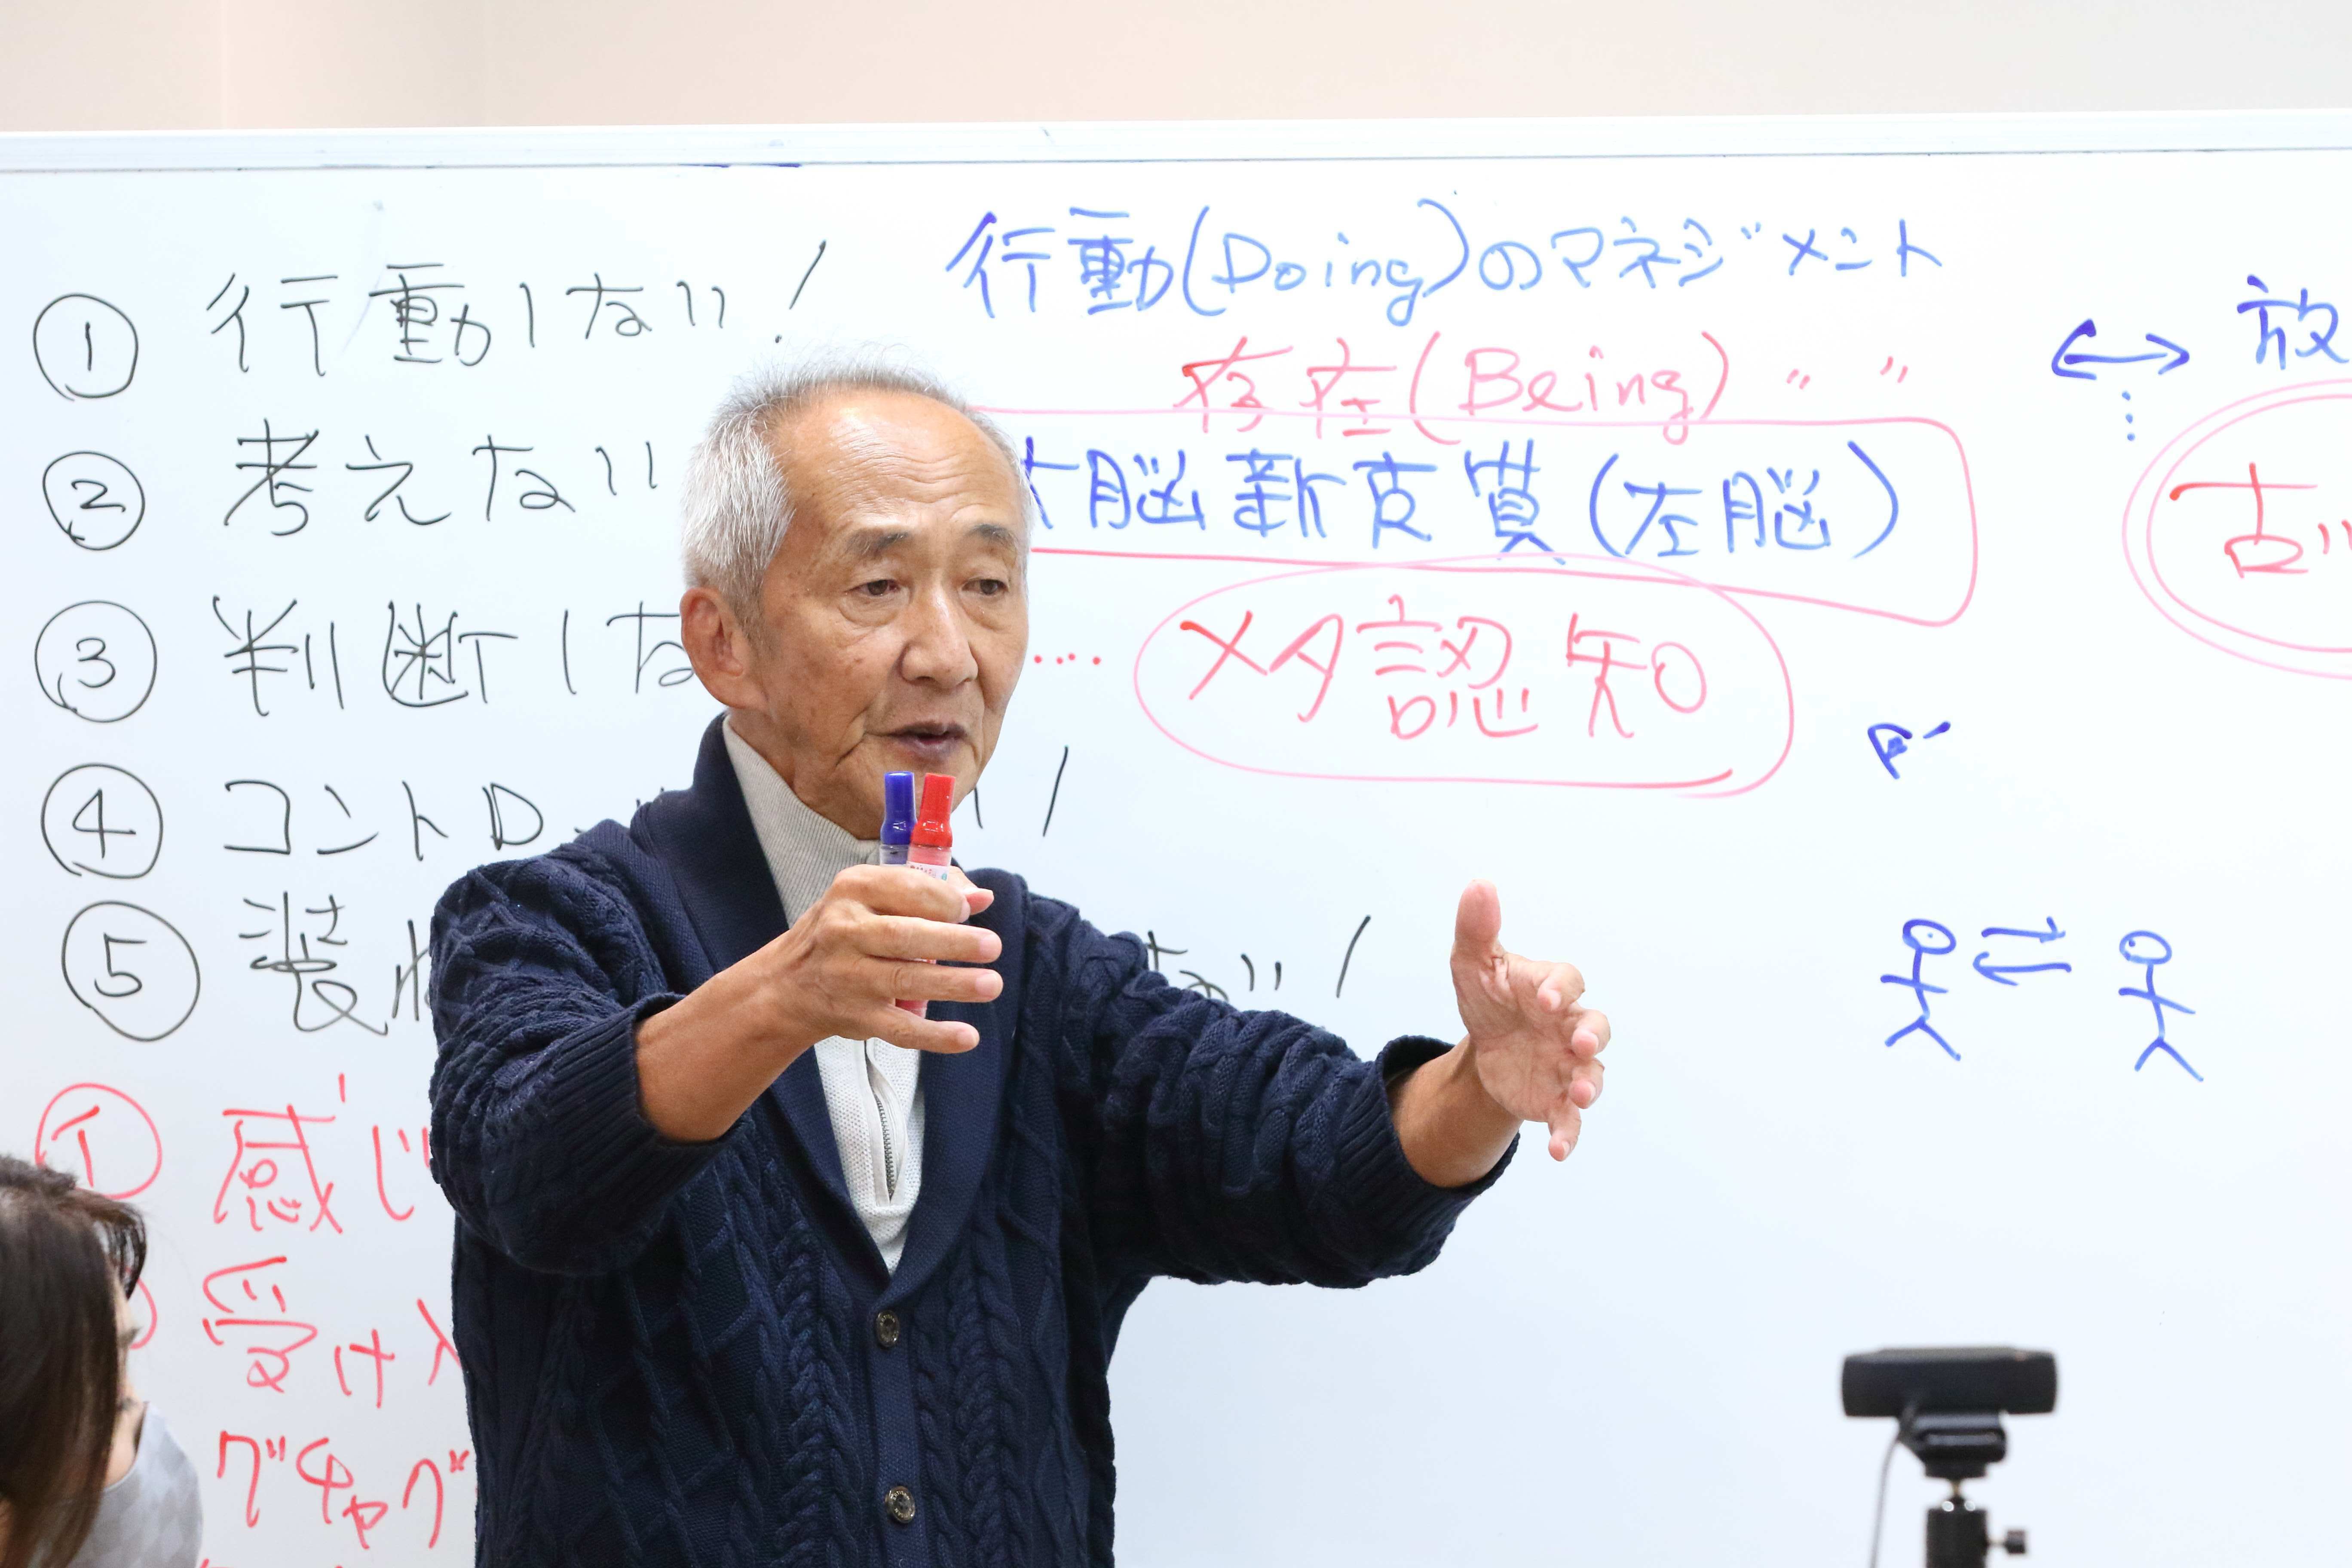 ① 行動しない!
② 考えない
③ 判断しな
④ コントロー
⑤ 装わ ない!
① 感じ
受け入
グチャグ
行動(Doing)のマネジメント
存在(Being) 〃 〃
大脳新皮質(左脳)
…メタ認知
↔ 放
古い